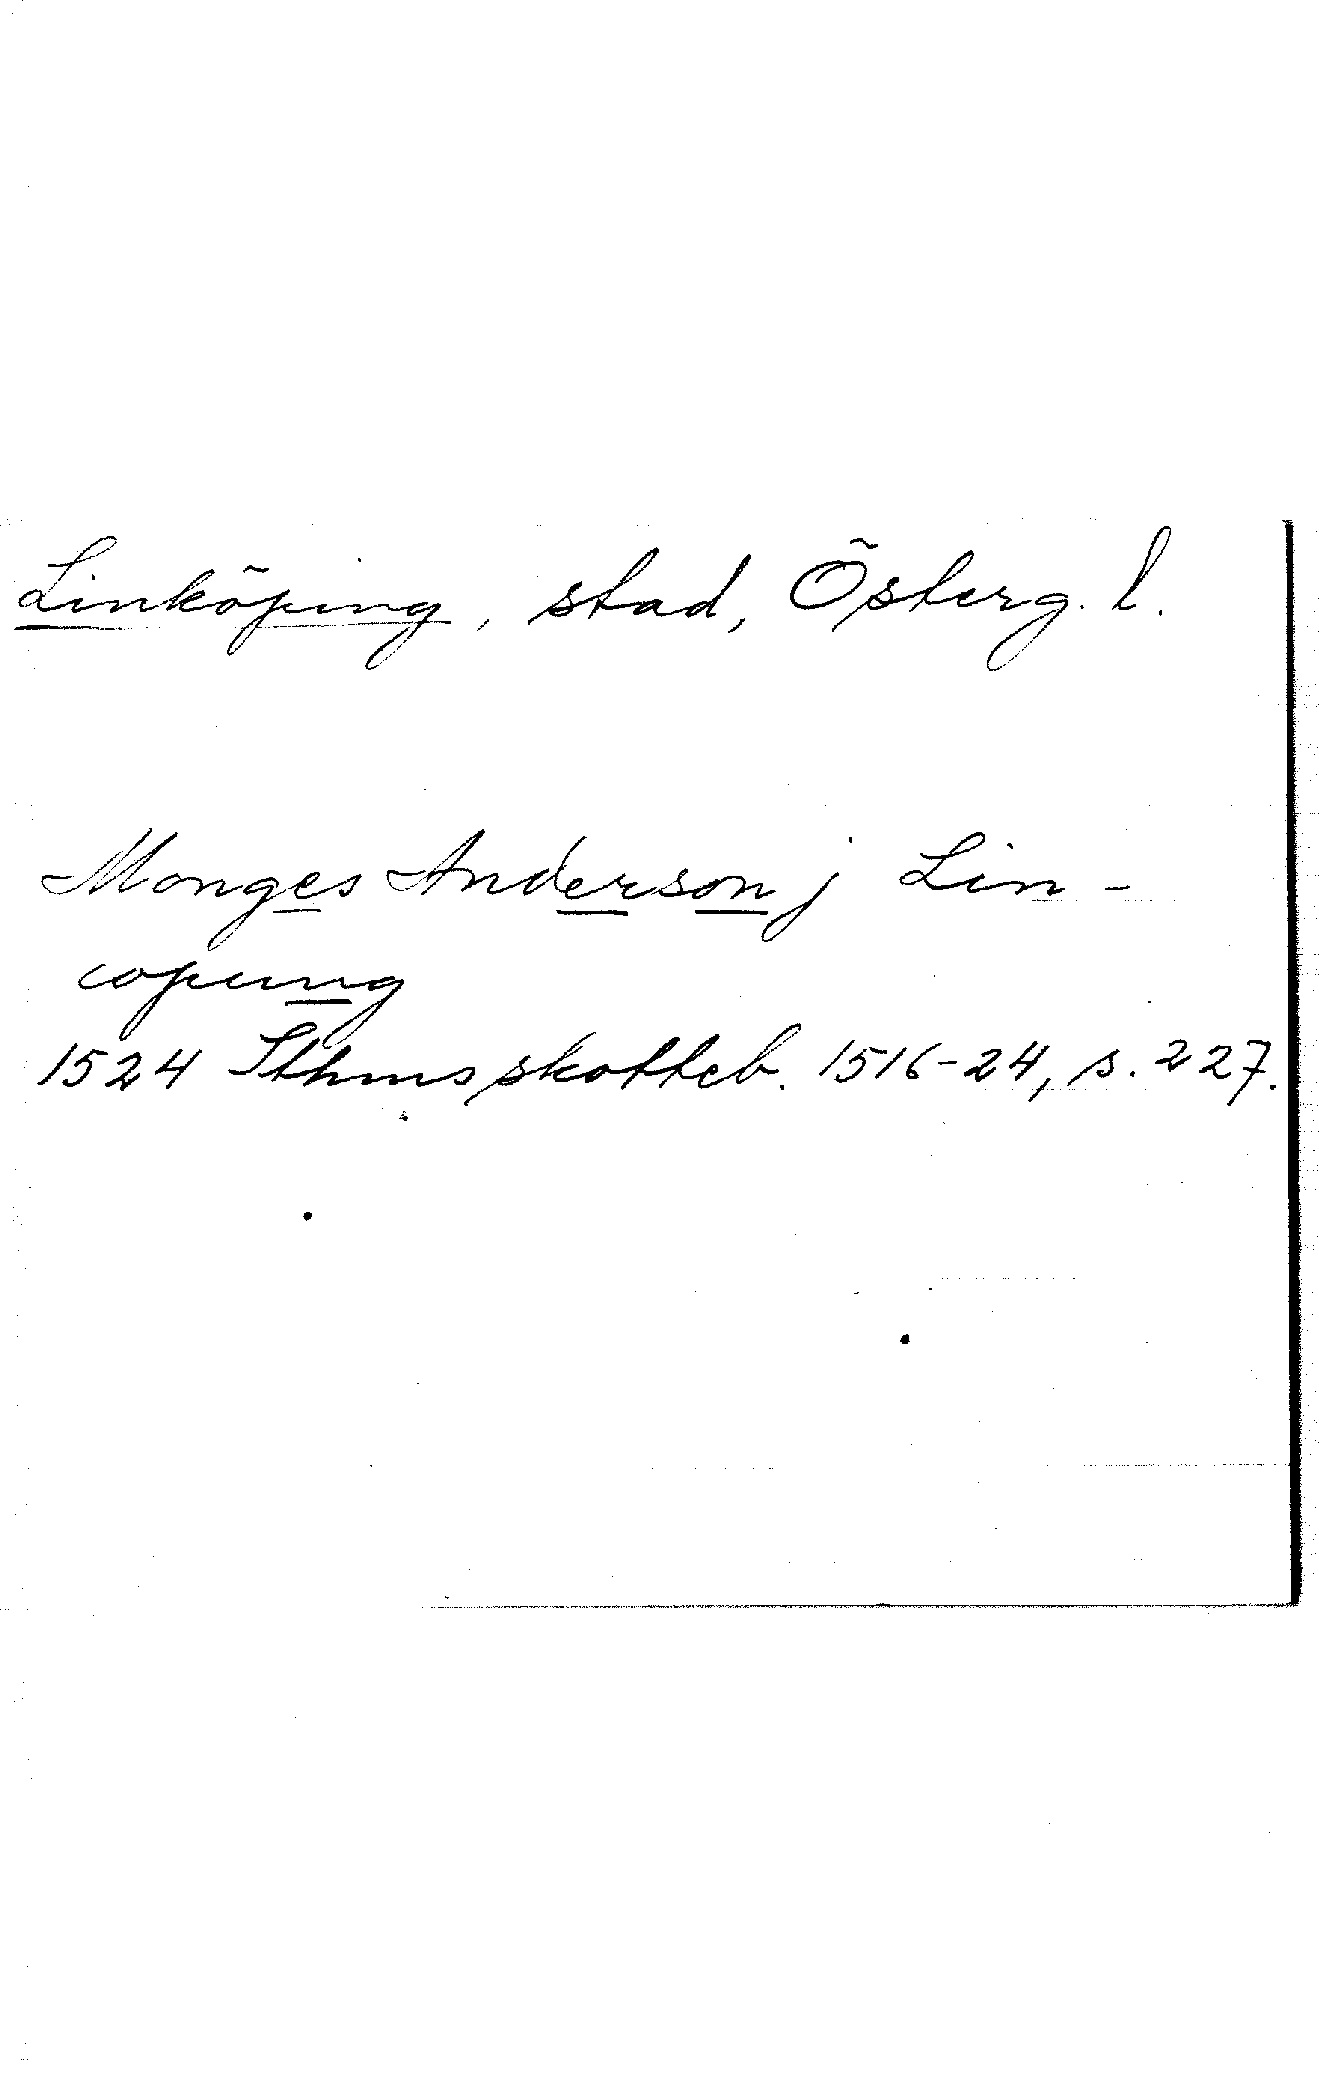 Linköping, stad, Österg. l.
Monges Anderson j Lin-
copung
1524 Sthms skotteb. 1516-24, s. 227.